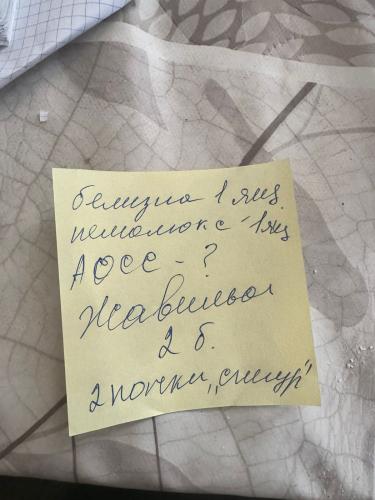 белизна 1 ящ.
пемолюкс - 1ящ
АОСС - ?
Жавильон
2 б.
2 пачки „снегур"